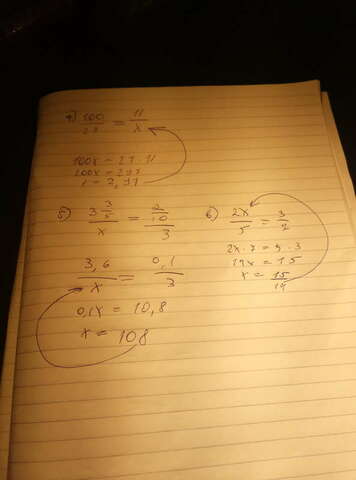 4) 100/27 = 11/x
100x = 27 · 11
100x = 297
x = 2,97
5) 3 3/5 / x = 2/10 / 3
3,6/x = 0,1/3
0,1x = 10,8
x = 108
6) 2x/5 = 3/7
2x · 7 = 5 · 3
14x = 15
x = 15/14